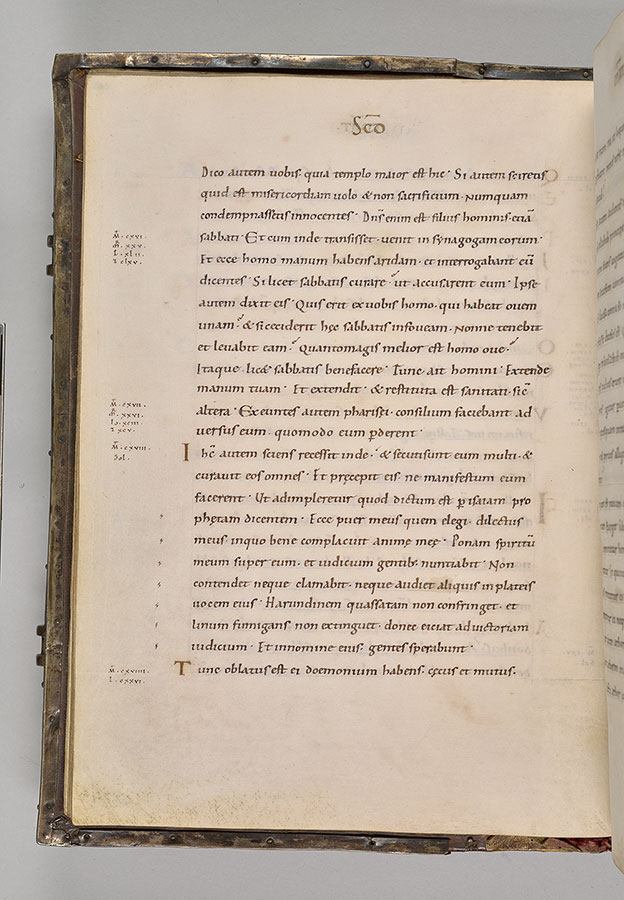 Scd̄o
Dico autem uobis· quia templo maior est hic· Si autem sciretis
quid est misericordiam uolo & non sacrificium· Numquam
condempnassetis innocentes· Dn̄s enim est filius hominis· etiā
M̄· cxvi·
sabbati· Et cum inde transisset· uenit in synagogam eorum·
M̄r· xxv·
L· xlii·
Et ecce homo manum habens aridam· et interrogabant eū
I clxv·
dicentes· Si licet sabbatis curare· ut accusarent eum· Ipse
autem dixit eis· Quis erit ex uobis homo· qui habeat ouem
unam· & si ceciderit hęc sabbatis in foueam· Nonne tenebit
et leuabit eam· Quantomagis melior est homo oue·
Itaque lic& sabbatis benefacere· Tunc ait homini· Extende
manum tuam· Et extendit· & restituta est sanitati· sic̄
M̄· cxvii·
altera· Exeuntes autem pharisei· consilium faciebant ad
M̄r· xxvi·
Io· xciii·
uersus eum· quomodo eum ꝑderent·
I xcv·
M̄· cxviii·
Sol·
Ihc̄ autem sciens recessit inde· & secuti sunt eum multi· &
curauit eos omnes· Et pręcepit eis· ne manifestum eum
facerent· Ut adimpleretur quod dictum est ꝑ isaiam pro
phętam dicentem· Ecce puer meus quem elegi· dilectus
meus· inquo bene complacuit animę meę· Ponam spiritū
meum super eum· et iudicium gentib; nuntiabit· Non
contendet neque clamabit· neque audiet aliquis in plateis
uocem eius· Harundinem quassatam non confringet· et
linum fumigans non extinguet· donec eiciat ad uictoriam
iudicium· Et innomine eius· gentes sperabunt·
M̄· cxviiii·
Tunc oblatus est ei doemonium habens· cęcus et mutus·
L· cxxvi·